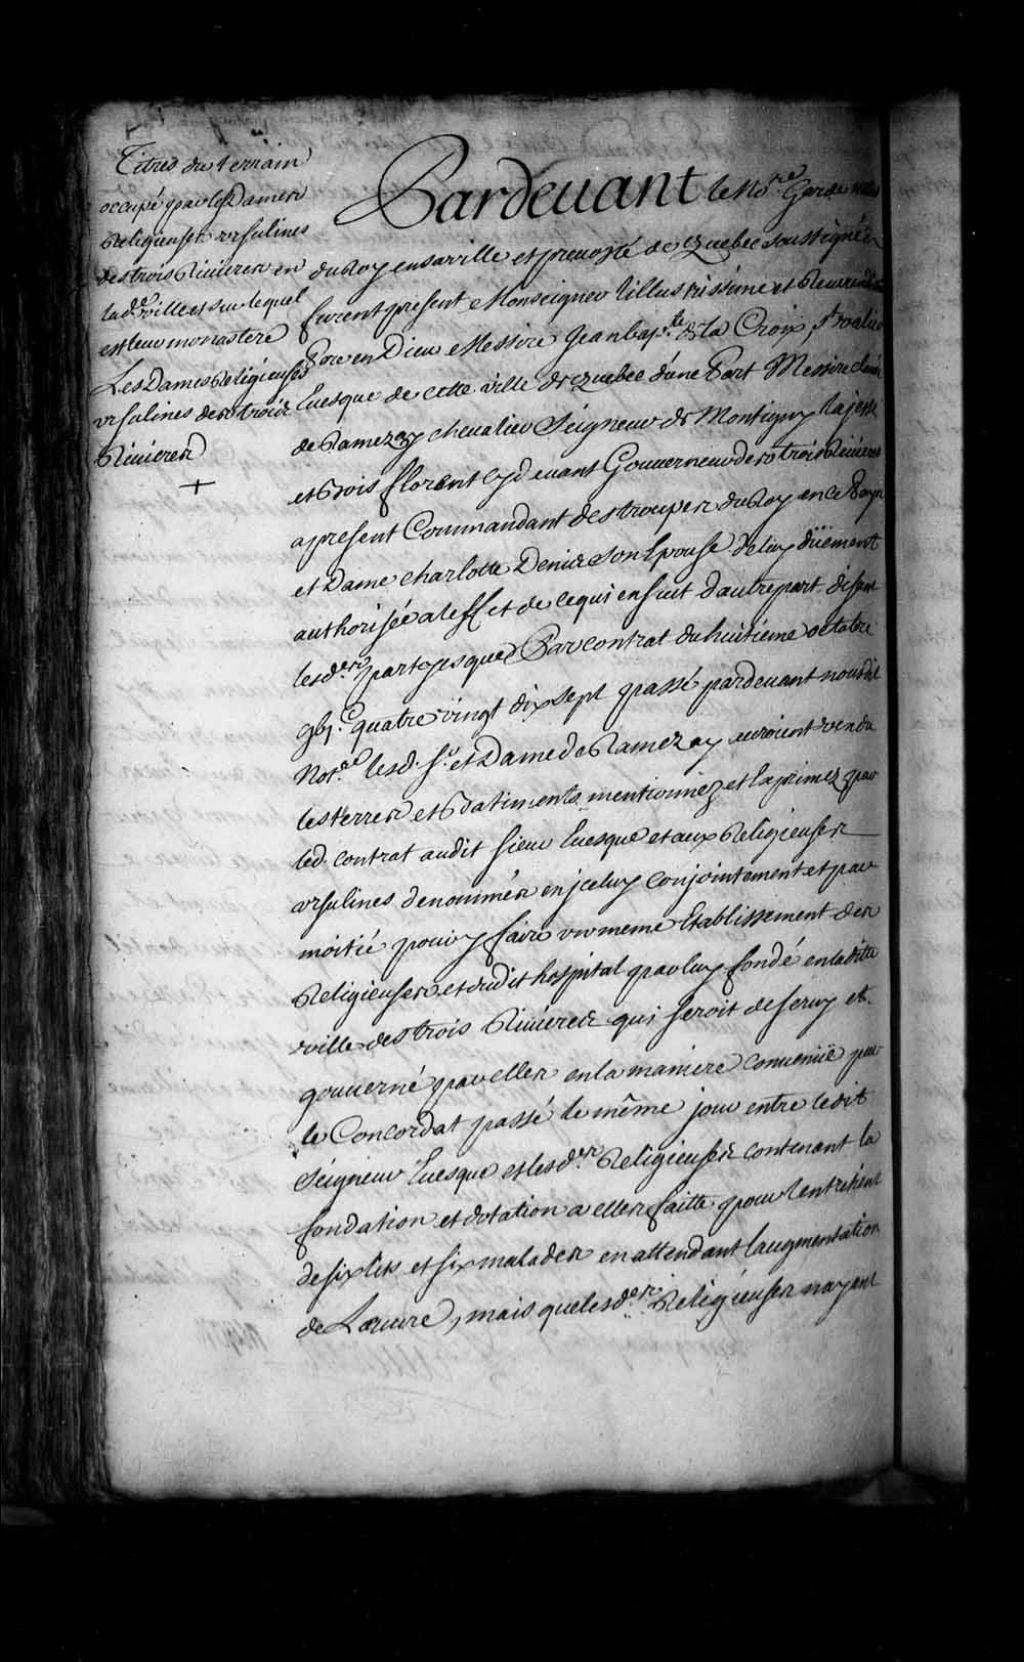 Titres du terrain
occupé par les Dames
Religieuses ursulines
des trois Rivieres en
lad.e ville et sur lequel
est leur monastere
Les Dames Religieuses
ursulines des trois
Rivieres
+
Pardevant le Not.re Garde notes
du Roy en sa ville et prevosté de Quebec soussigné
furent present Monseigneur Lillustrissime et Reverend
Pere en Dieu Messire Jean bap.te de la Croix, St valier
Evesque de cette ville de Quebec d'une Part Messire Claude
de Ramezay chevalier Seigneur de Montigny la jesse
et Bois florent cy devant Gouverneur des trois Rivieres
a present Commandant des trouppes du Roy en ce Pays
et Dame charlotte Denis son Epouse de luy düement
authorisée a leffet de ce qui ensuit d'autre part. disant
lesd.es partyes que Par contrat du huitieme octobre
gbj.c quatre vingt dix sept passé pardevant nousdit
Not.re lesd. Sr. et Dame de Ramezay auroient vendu
les terres et Batiments mentionnez et Exprimez par
led. contrat audit sieur Evesque et aux Religieuses
ursulines denommées en jceluy conjointement et par
moitié pour y faire un meme Etablissement des
Religieuses et dudit hospital par luy fondé en laditte
ville des trois Rivieres qui seroit deservy et
gouverné par elles en la maniere convenüe par
le Concordat passé le même jour entre ledit
Seigneur Evesque et lesd.es Religieuses contenant la
fondation et dotation a elles faitte pour l'entretient
de six lits et six malades en attendant laugmentation
de Lœuvre, mais que lesd.es Religieuses nayant